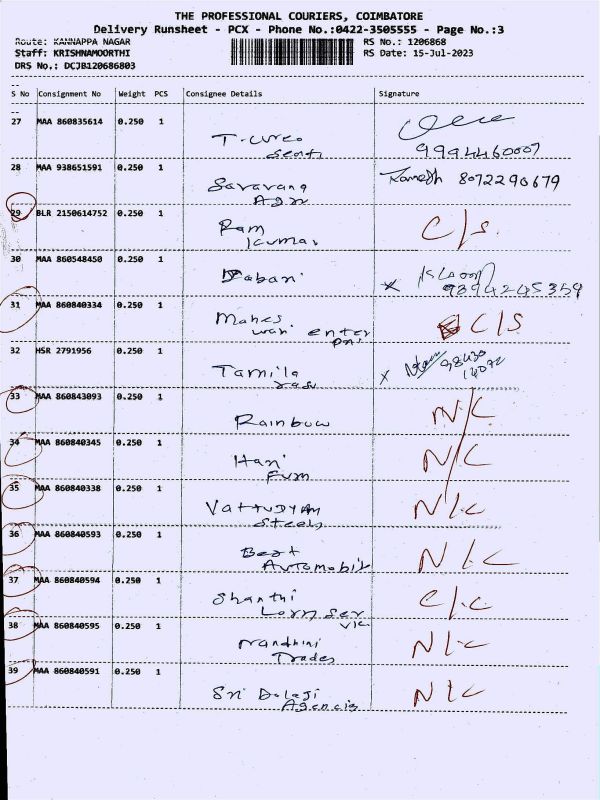 THE PROFESSIONAL COURIERS, COIMBATORE
Delivery Runsheet - PCX - Phone No.:0422-3505555 - Page No.:3
Route: KANNAPPA NAGAR
RS No.: 1206868
Staff: KRISHNAMOORTHI
RS Date: 15-Jul-2023
DRS No.: DCJB120686803
S No Consignment No Weight PCS Consignee Details Signature
27 MAA 860835614 0.250 1
T-cureo
9994460007
28 MAA 938651591 0.250 1
Saravana Ramesh 8072290679
Agn
29 BLR 2150614752 0.250 1
Ram C/S.
Kumar
30 MAA 860548450 0.250 1
Babani
x 9894245359
31 MAA 860840334 0.250 1
Mahes C/S
wari enter
pri
32 HSR 2791956 0.250 1
Tamila x 98430
rasu 14072
33 MAA 860843093 0.250 1
Rainbow N/C
34 MAA 860840345 0.250 1
Hari N/C
Furn
35 MAA 860840338 0.250 1
N/C
Steels
36 MAA 860840593 0.250 1
Best N/C
Automobil
37 MAA 860840594 0.250 1
Shanthi C/C
Lorry Ser
vic
38 MAA 860840595 0.250 1
Nandhini N/C
Trades
39 MAA 860840591 0.250 1
Sri Balaji N/C
Agencis